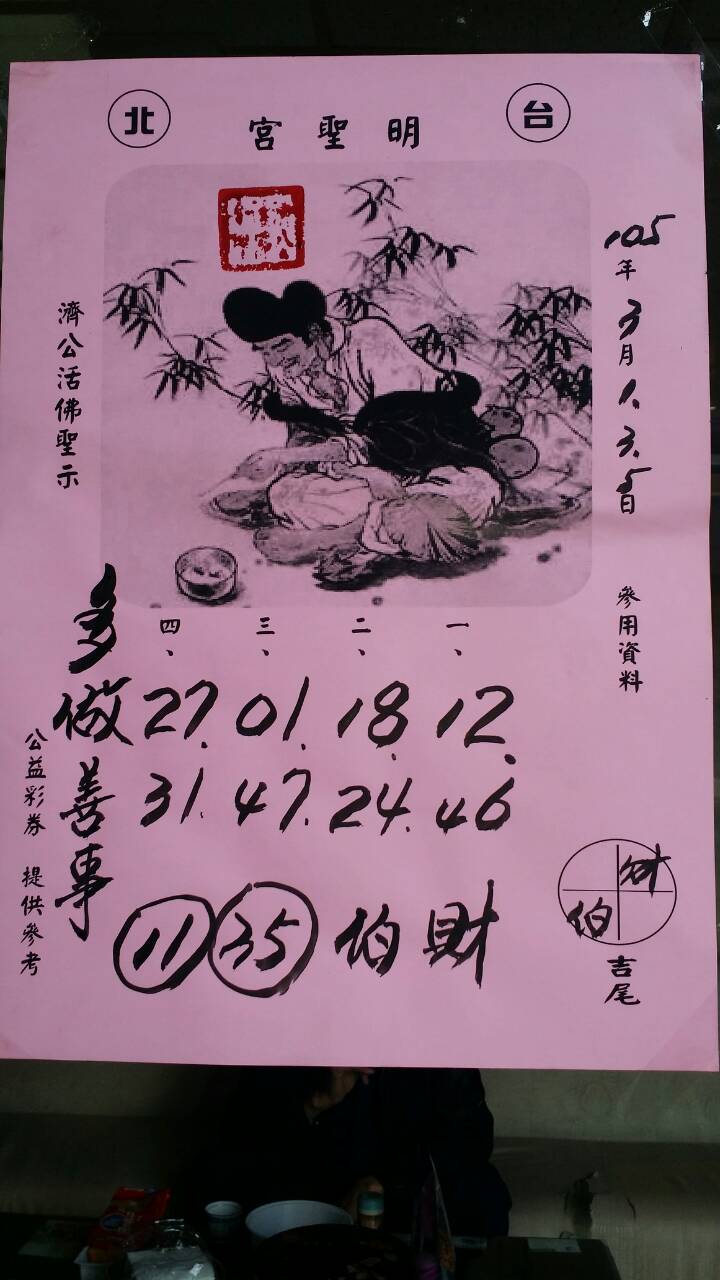 台北
明聖宮
105年3月1.3.5日
參用資料
濟公活佛聖示
一、二、三、四、
12. 18. 01. 27.
46 24. 47. 31.
財伯 35 11
多做善事
公益彩券 提供參考
財伯
吉尾